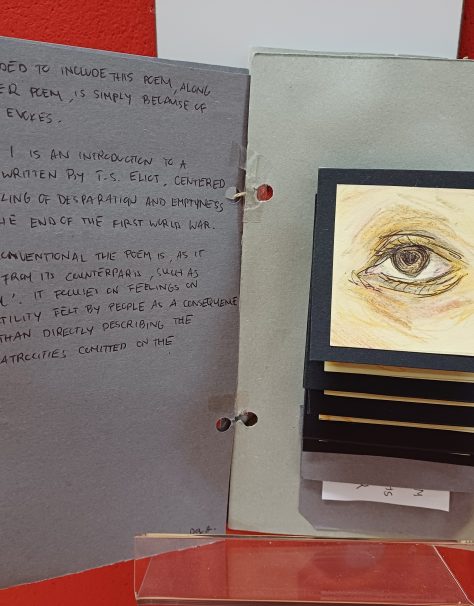 DED TO INCLUDE THIS POEM, ALONG
ER POEM, IS SIMPLY BECAUSE OF
EVOKES.
I IS AN INTRODUCTION TO A
WRITTEN BY T.S. ELIOT, CENTERED
LING OF DESPARATION AND EMPTYNESS
HE END OF THE FIRST WORLD WAR.
CONVENTIONAL THE POEM IS, AS IT
FROM ITS COUNTERPARTS, SUCH AS
'. IT FOCUSES ON FEELINGS ON
TILITY FELT BY PEOPLE AS A CONSEQUENCE
THAN DIRECTLY DESCRIBING THE
ATROCITIES COMITTED ON THE